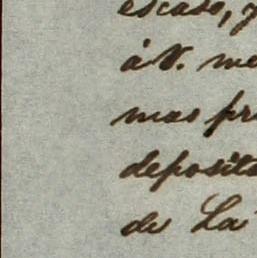 escaso, y
á V. me
mas pr
deposita
de La